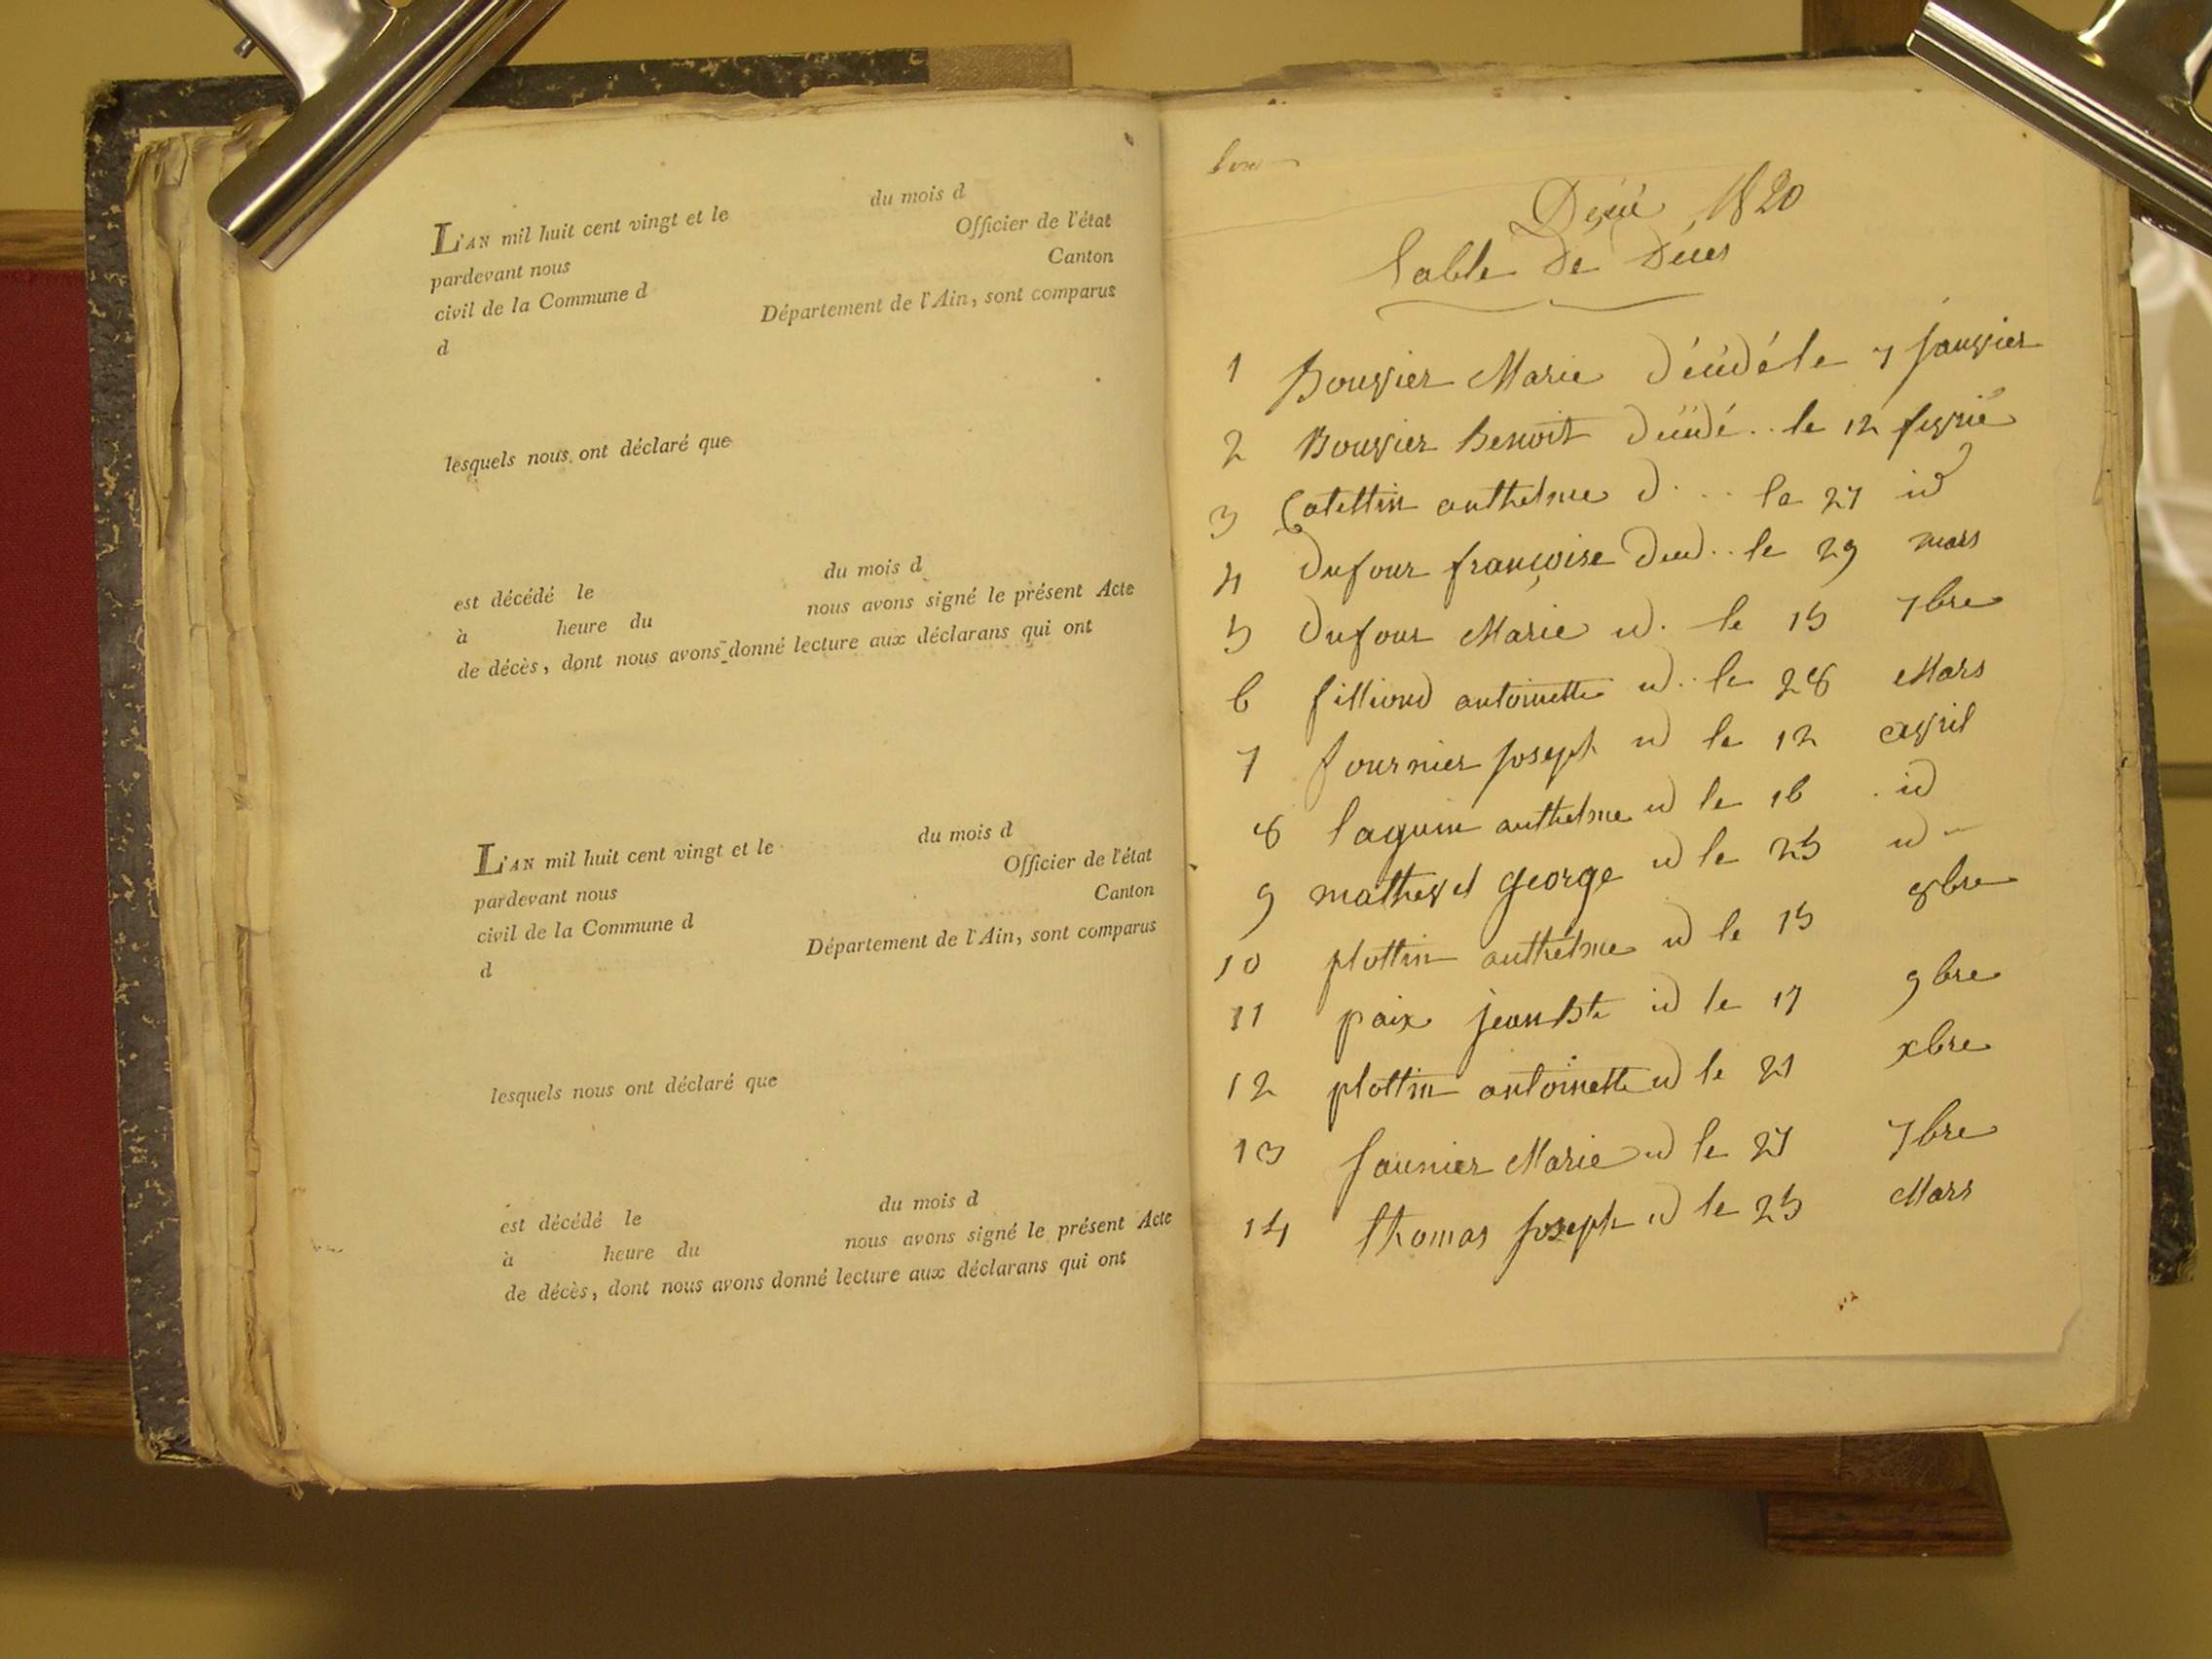 L'AN mil huit cent vingt et le du mois d
pardevant nous Officier de l'état
civil de la Commune d Canton
d Département de l'Ain, sont comparus
lesquels nous ont déclaré que
est décédé le du mois d
à heure du nous avons signé le présent Acte
de décès, dont nous avons donné lecture aux déclarans qui ont
L'AN mil huit cent vingt et le du mois d
pardevant nous Officier de l'état
civil de la Commune d Canton
d Département de l'Ain, sont comparus
lesquels nous ont déclaré que
est décédé le du mois d
à heure du nous avons signé le présent Acte
de décès, dont nous avons donné lecture aux déclarans qui ont
1820
Table De Déces
1 Bouvier Marie décédé le 7 janvier
2 Bouvier Benoit décédé .. le 12 fevrié
3 Catettin anthelme d... le 27 id
4 Dufour françoise Deced.. le 29 mars
5 Dufour Marie id. le 15 7bre
6 filliond antoinette id.. le 28 Mars
7 fournier joseph id le 12 avril
8 laguin anthelme id le 16 . id
9 mathevet george id le 25 id
10 plottin anthelme id le 15 8bre
11 paix jean Bte id le 17 9bre
12 plottin antoinette id le 21 xbre
13 saunier Marie id le 27 7bre
14 thomas joseph id le 25 Mars